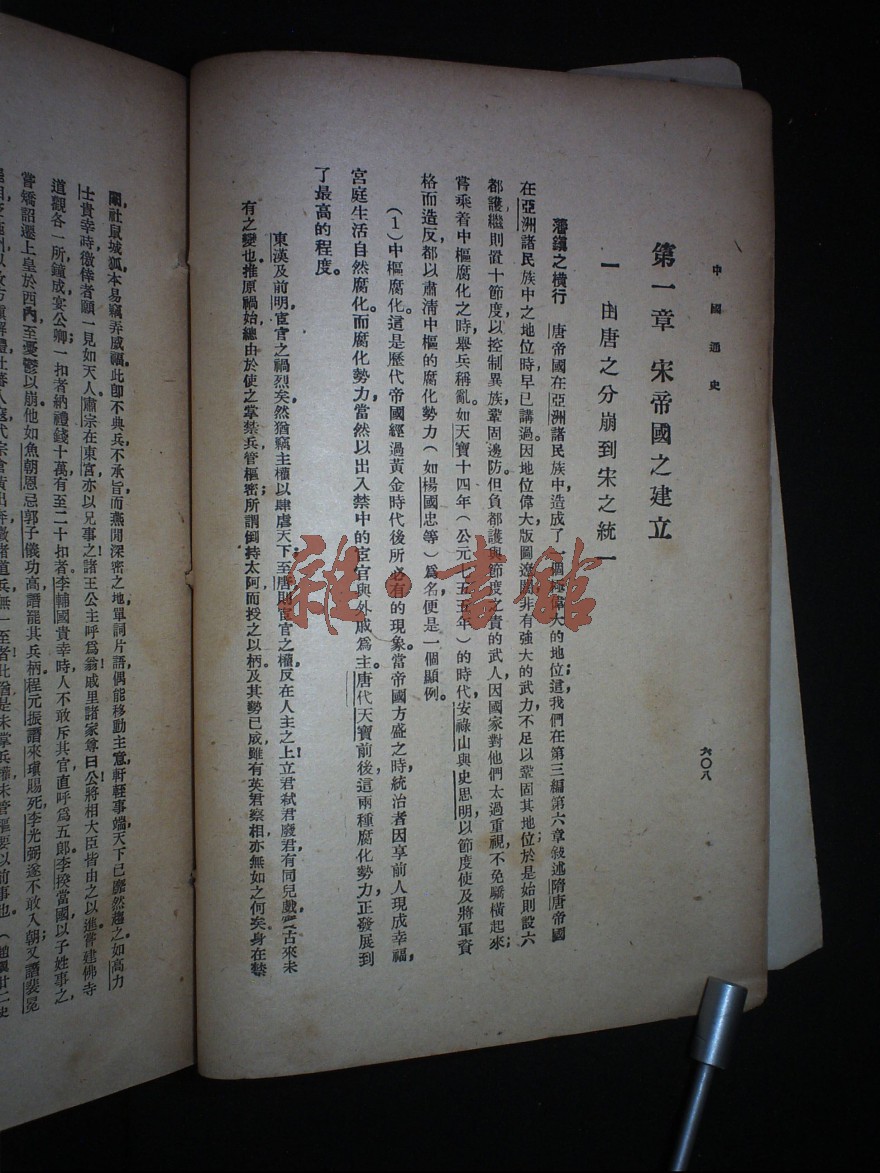 中國通史
六〇八
第一章　宋帝國之建立
一　由唐之分崩到宋之統一
藩鎮之橫行　唐帝國在亞洲諸民族中，造成了一個極偉大的地位；這，我們在第三編第六章敍述隋唐帝國
在亞洲諸民族中之地位時，早已講過。因地位偉大，版圖遼闊，非有強大的武力，不足以鞏固其地位；於是始則設六
都護，繼則置十節度，以控制異族，鞏固邊防。但負都護與節度之責的武人，因國家對他們太過重視，不免驕橫起來；
嘗乘着中樞腐化之時，舉兵稱亂。如天寶十四年（公元七五五年）的時代，安祿山與史思明以節度使及將軍資
格而造反，都以肅清中樞的腐化勢力（如楊國忠等）爲名，便是一個顯例。
（1）中樞腐化。這是歷代帝國經過黃金時代後所必有的現象。當帝國方盛之時，統治者因享前人現成幸福，
宮庭生活，自然腐化。而腐化勢力，當然以出入禁中的宦官與外戚爲主。唐代天寶前後，這兩種腐化勢力，正發展到
了最高的程度。
東漢及前明，宦官之禍烈矣，然猶竊主權以肆虐天下；至唐則宦官之權，反在人主之上，立君弒君廢君，有同兒戲，實古來未
有之變也。推原禍始，總由於使之掌禁兵，管樞密；所謂倒持太阿，而授之以柄，及其勢已成，雖有英君察相，亦無如之何矣。身在禁
闥，社鼠城狐，本易竊弄威福，此卽不典兵，不承旨，而燕閒深密之地，單詞片語，偶能移動主意，軒輊事端，天下已靡然趨之。如高力
士貴幸時，徼倖者願一見如天人。肅宗在東宮，亦以兄事之；諸王公主呼爲翁；戚里諸家尊曰公；將相大臣，皆由之以進。嘗建佛寺
道觀各一所，鐘成，宴公卿，一扣者納禮錢十萬，有至二十扣者。李輔國貴幸時，人不敢斥其官，直呼爲五郎。李揆當國，以子姓事之，
嘗矯詔遷上皇於西內，至憂鬱以崩。他如魚朝恩忌郭子儀功高，譖罷其兵柄。程元振譖來瑱賜死，李光弼遂不敢入朝；又譖裴冕